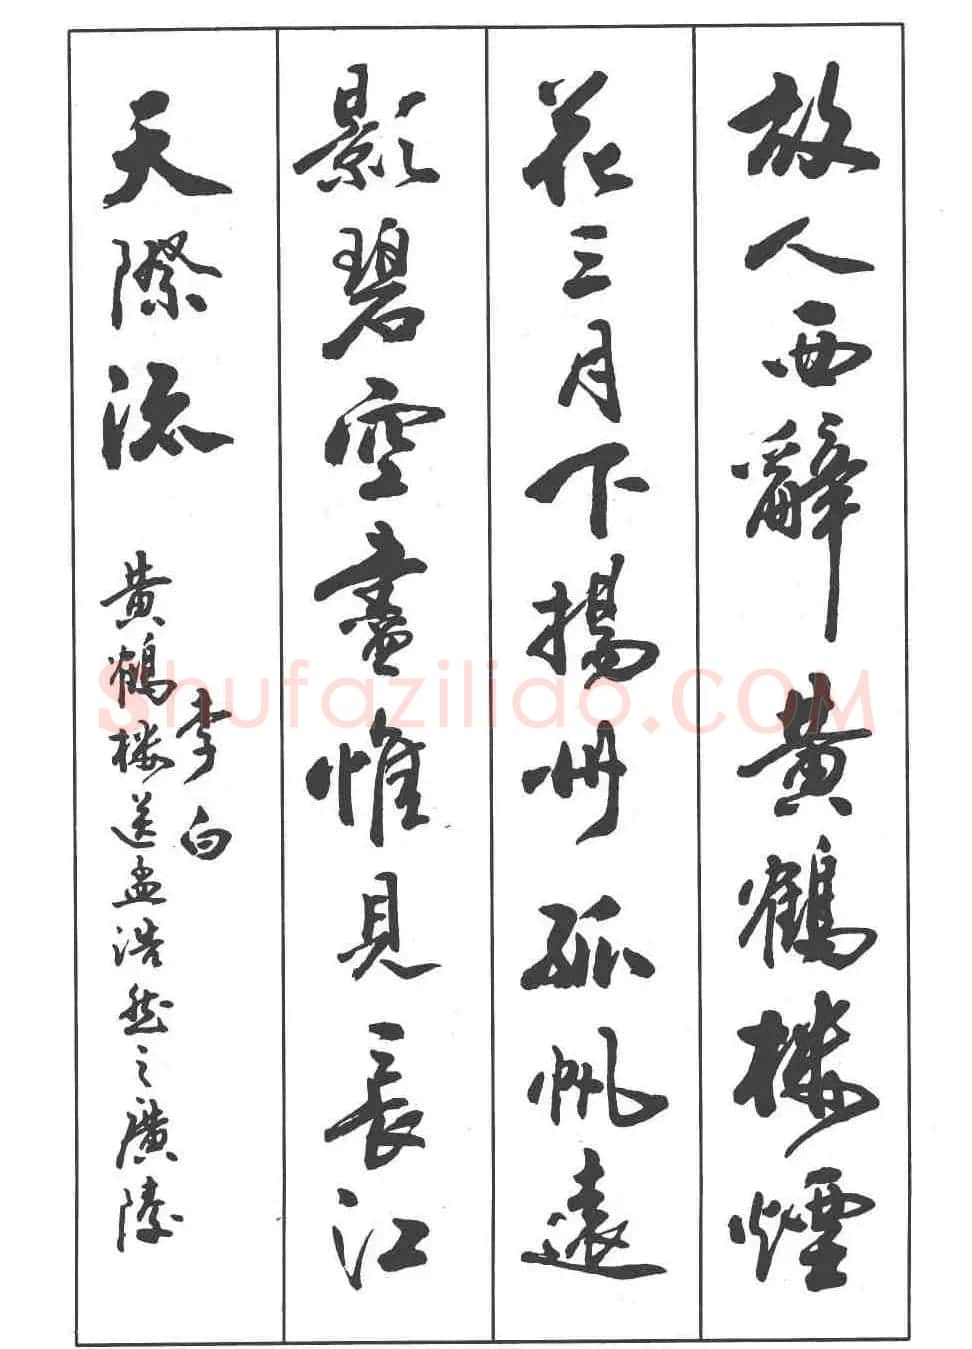 故人西辭黃鶴樓煙
花三月下揚州孤帆遠
影碧空盡惟見長江
天際流
李白
黃鶴樓送孟浩然之廣陵
Shufaziliao.COM